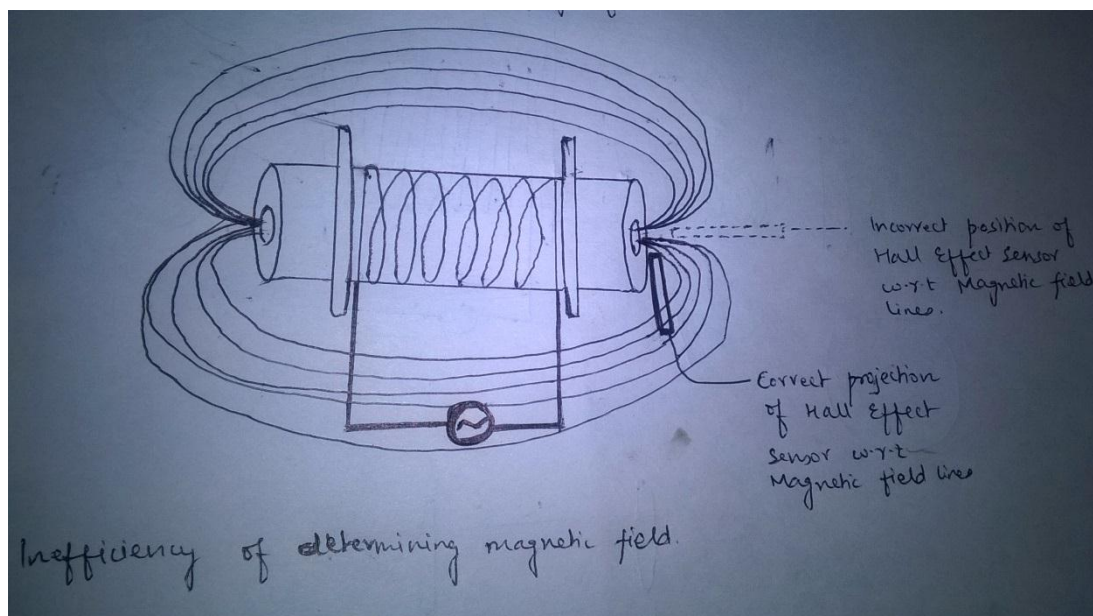 Incorrect position of
Hall Effect Sensor
w.r.t Magnetic field
lines.
Correct projection
of Hall Effect
Sensor w.r.t
Magnetic field lines
Inefficiency of determining magnetic field.